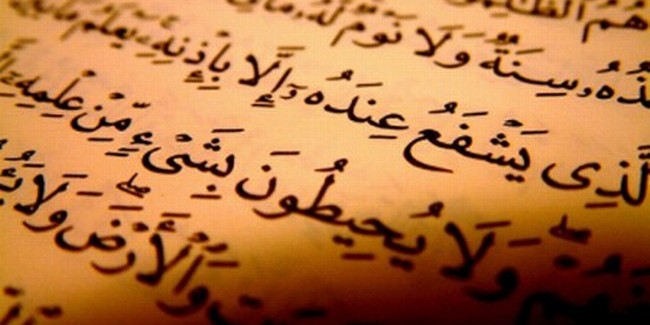 هُمُ ٱلظَّـٰلِمُو
خُذُهُۥ سِنَةٌ وَلَا نَوْمٌ لَّهُۥ مَا فِى
ٱلَّذِى يَشْفَعُ عِندَهُۥٓ إِلَّا بِإِذْنِهِۦ يَعْلَمُ مَا
وَلَا يُحِيطُونَ بِشَىْءٍ مِّنْ عِلْمِهِۦٓ
وَٱلْأَرْضَ وَلَا